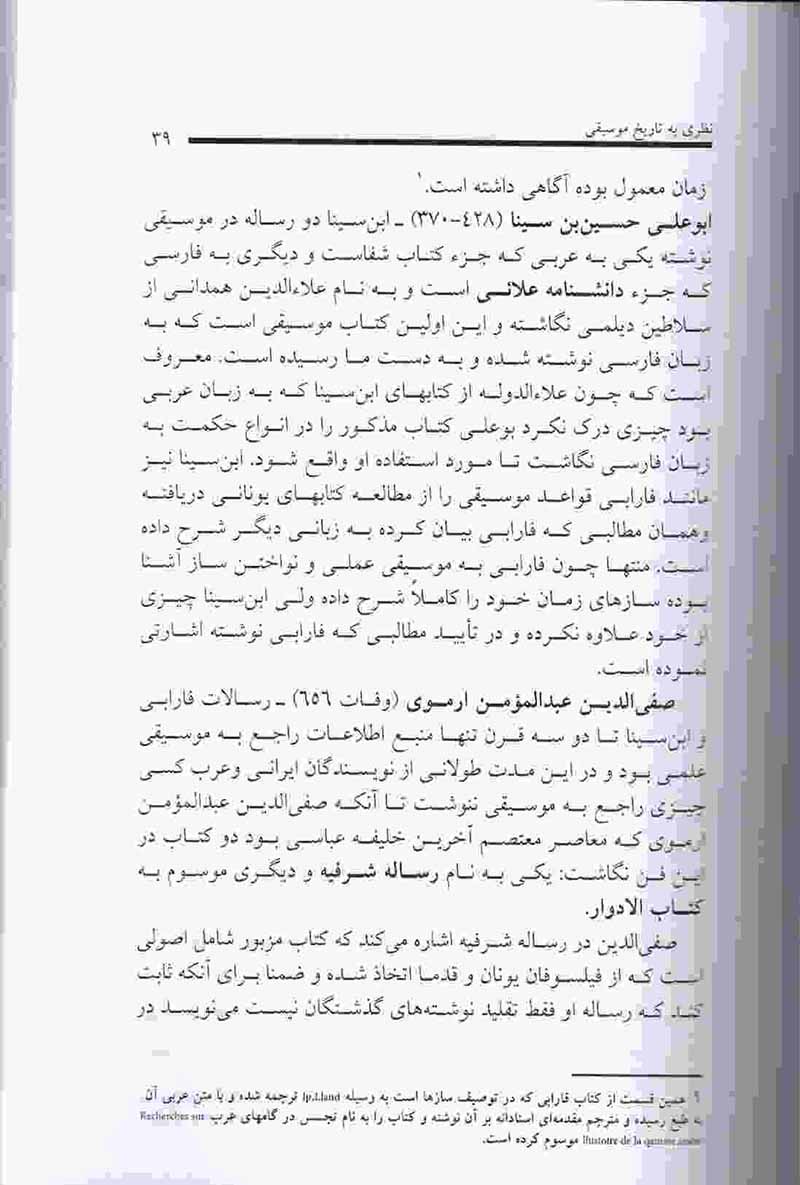 نظری به تاریخ موسیقی
۳۹
زمان معمول بوده آگاهی داشته است.۱
ابوعلی حسین‌بن سینا (۴۲۸-۳۷۰) ـ ابن‌سینا دو رساله در موسیقی
نوشته یکی به عربی که جزء کتاب شفاست و دیگری به فارسی
که جزء دانشنامه علائی است و به نام علاءالدین همدانی از
سلاطین دیلمی نگاشته و این اولین کتاب موسیقی است که به
زبان فارسی نوشته شده و به دست ما رسیده است. معروف
است که چون علاءالدوله از کتابهای ابن‌سینا که به زبان عربی
بود چیزی درک نکرد بوعلی کتاب مذکور را در انواع حکمت به
زبان فارسی نگاشت تا مورد استفاده او واقع شود. ابن‌سینا نیز
مانند فارابی قواعد موسیقی را از مطالعه کتابهای یونانی دریافته
وهمان مطالبی که فارابی بیان کرده به زبانی دیگر شرح داده
است. منتها چون فارابی به موسیقی عملی و نواختن ساز آشنا
بوده سازهای زمان خود را کاملاً شرح داده ولی ابن‌سینا چیزی
از خود علاوه نکرده و در تأیید مطالبی که فارابی نوشته اشارتی
نموده است.
صفی‌الدین عبدالمؤمن ارموی (وفات ۶۵۶) ـ رسالات فارابی
و ابن‌سینا تا دو سه قرن تنها منبع اطلاعات راجع به موسیقی
علمی بود و در این مدت طولانی از نویسندگان ایرانی وعرب کسی
چیزی راجع به موسیقی ننوشت تا آنکه صفی‌الدین عبدالمؤمن
ارموی که معاصر معتصم آخرین خلیفه عباسی بود دو کتاب در
این فن نگاشت: یکی به نام رساله شرفیه و دیگری موسوم به
کتاب الادوار.
صفی‌الدین در رساله شرفیه اشاره می‌کند که کتاب مزبور شامل اصولی
است که از فیلسوفان یونان و قدما اتخاذ شده و ضمنا برای آنکه ثابت
کند که رساله او فقط تقلید نوشته‌های گذشتگان نیست می‌نویسد در
همین قسمت از کتاب فارابی که در توصیف سازها است به وسیله ترجمه شده و با متن عربی آن
به طبع رسیده و مترجم مقدمه‌ای استادانه بر آن نوشته و کتاب را به نام تجسس در گامهای عرب Recherches sur
de la gamme موسوم کرده است.